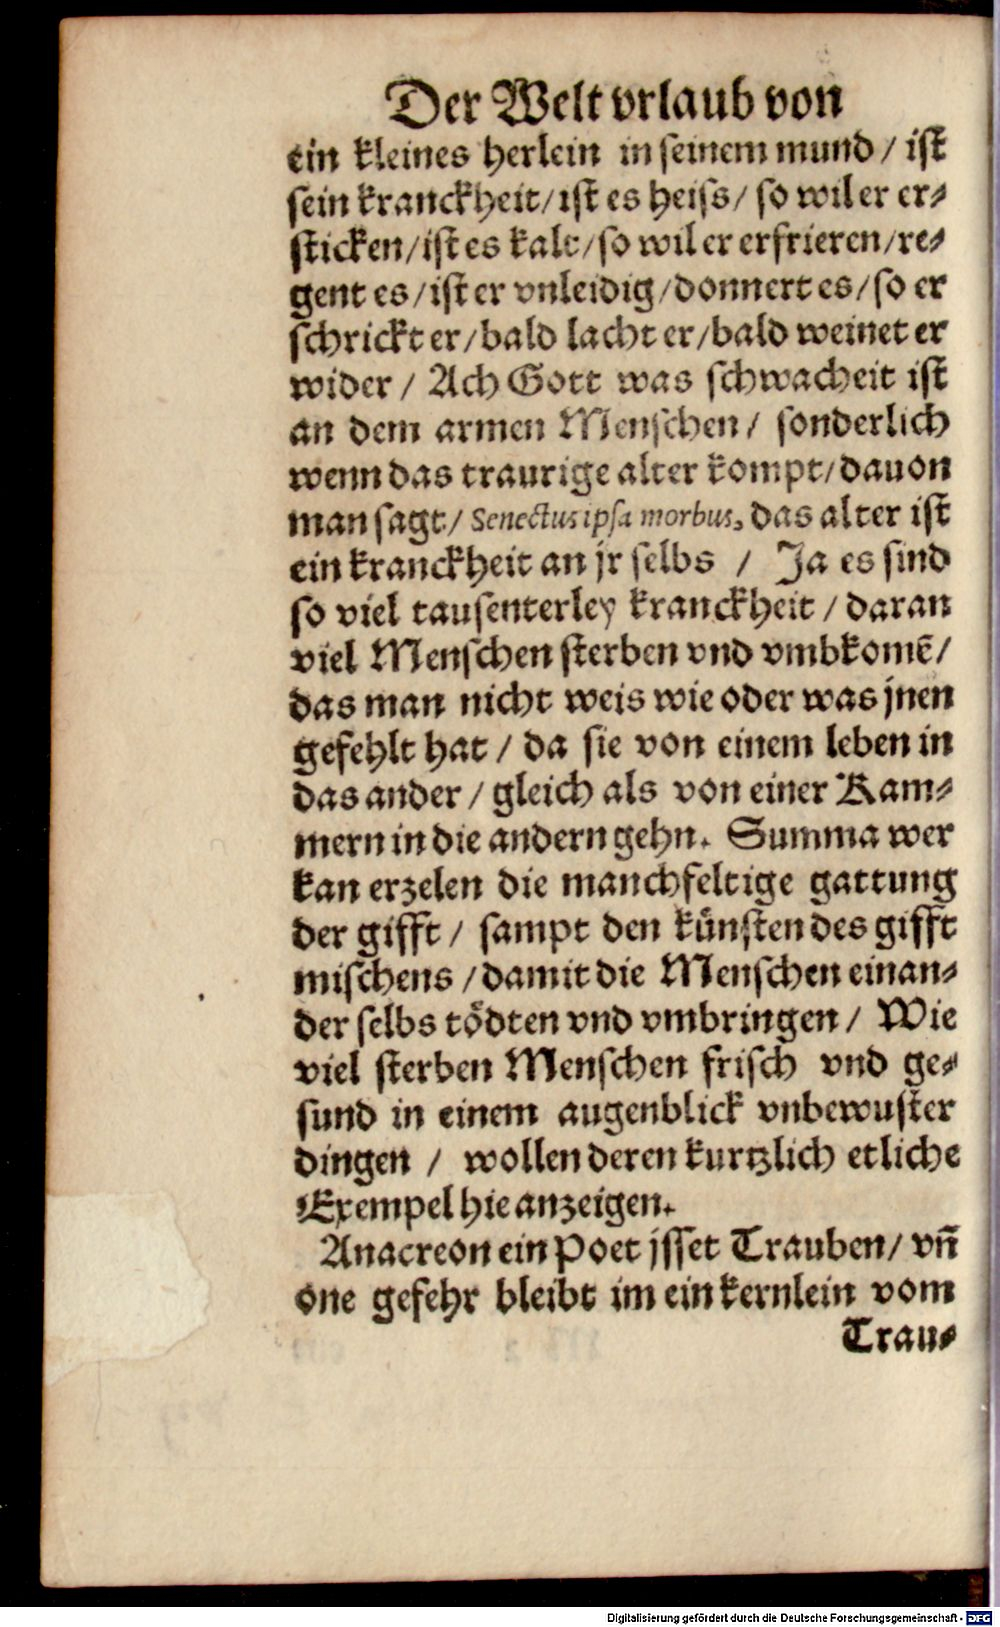 Der Welt vrlaub von
ein kleines herlein in seinem mund / ist
sein kranckheit / ist es heiss / so wil er er⸗
sticken / ist es kalt / so wil er erfrieren / re⸗
gent es / ist er vnleidig / donnert es / so er
schrickt er / bald lacht er / bald weinet er
wider / Ach Gott was schwacheit ist
an dem armen Menschen / sonderlich
wenn das traurige alter kompt / dauon
man sagt / Senectus ipsa morbus, das alter ist
ein kranckheit an jr selbs / Ja es sind
so viel tausenterley kranckheit / daran
viel Menschen sterben vnd vmbkomē /
das man nicht weis wie oder was jnen
gefehlt hat / da sie von einem leben in
das ander / gleich als von einer Kam⸗
mern in die andern gehn. Summa wer
kan erzelen die manchfeltige gattung
der gifft / sampt den künsten des gifft
mischens / damit die Menschen einan⸗
der selbs tödten vnd vmbringen / Wie
viel sterben Menschen frisch vnd ge⸗
sund in einem augenblick vnbewuster
dingen / wollen deren kurtzlich etliche
Exempel hie anzeigen.
Anacreon ein Poet jsset Trauben / vn̄
one gefehr bleibt im ein kernlein vom
Trau⸗
Digitalisierung gefördert durch die Deutsche Forschungsgemeinschaft - DFG